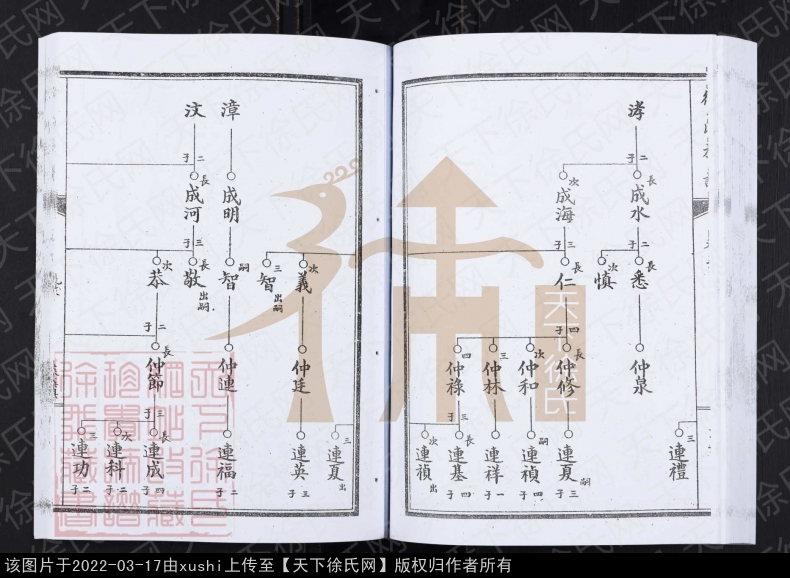 涛
二子
長
成水
次
成海
二子
三子
長
悉
次
慎
長
仁
四子
仲泉
長
仲修
次
仲和
三
仲林
四
仲祿
三子
三
連禮
嗣
連夏
三子
嗣
連禎
四子
連祥
一子
長
連基
四子
次
連禎
出
漳
汶
二子
成明
長
成河
三子
次
義
三
智
出嗣
嗣
智
長
敬
出嗣
次
恭
二子
仲廷
仲連
長
仲節
三子
三
連夏
出
連英
三子
連福
二子
長
連成
四子
次
連科
二子
三
連功
二子
天下徐氏
天下徐氏网
该图片于2022-03-17由xushi上传至【天下徐氏网】版权归作者所有